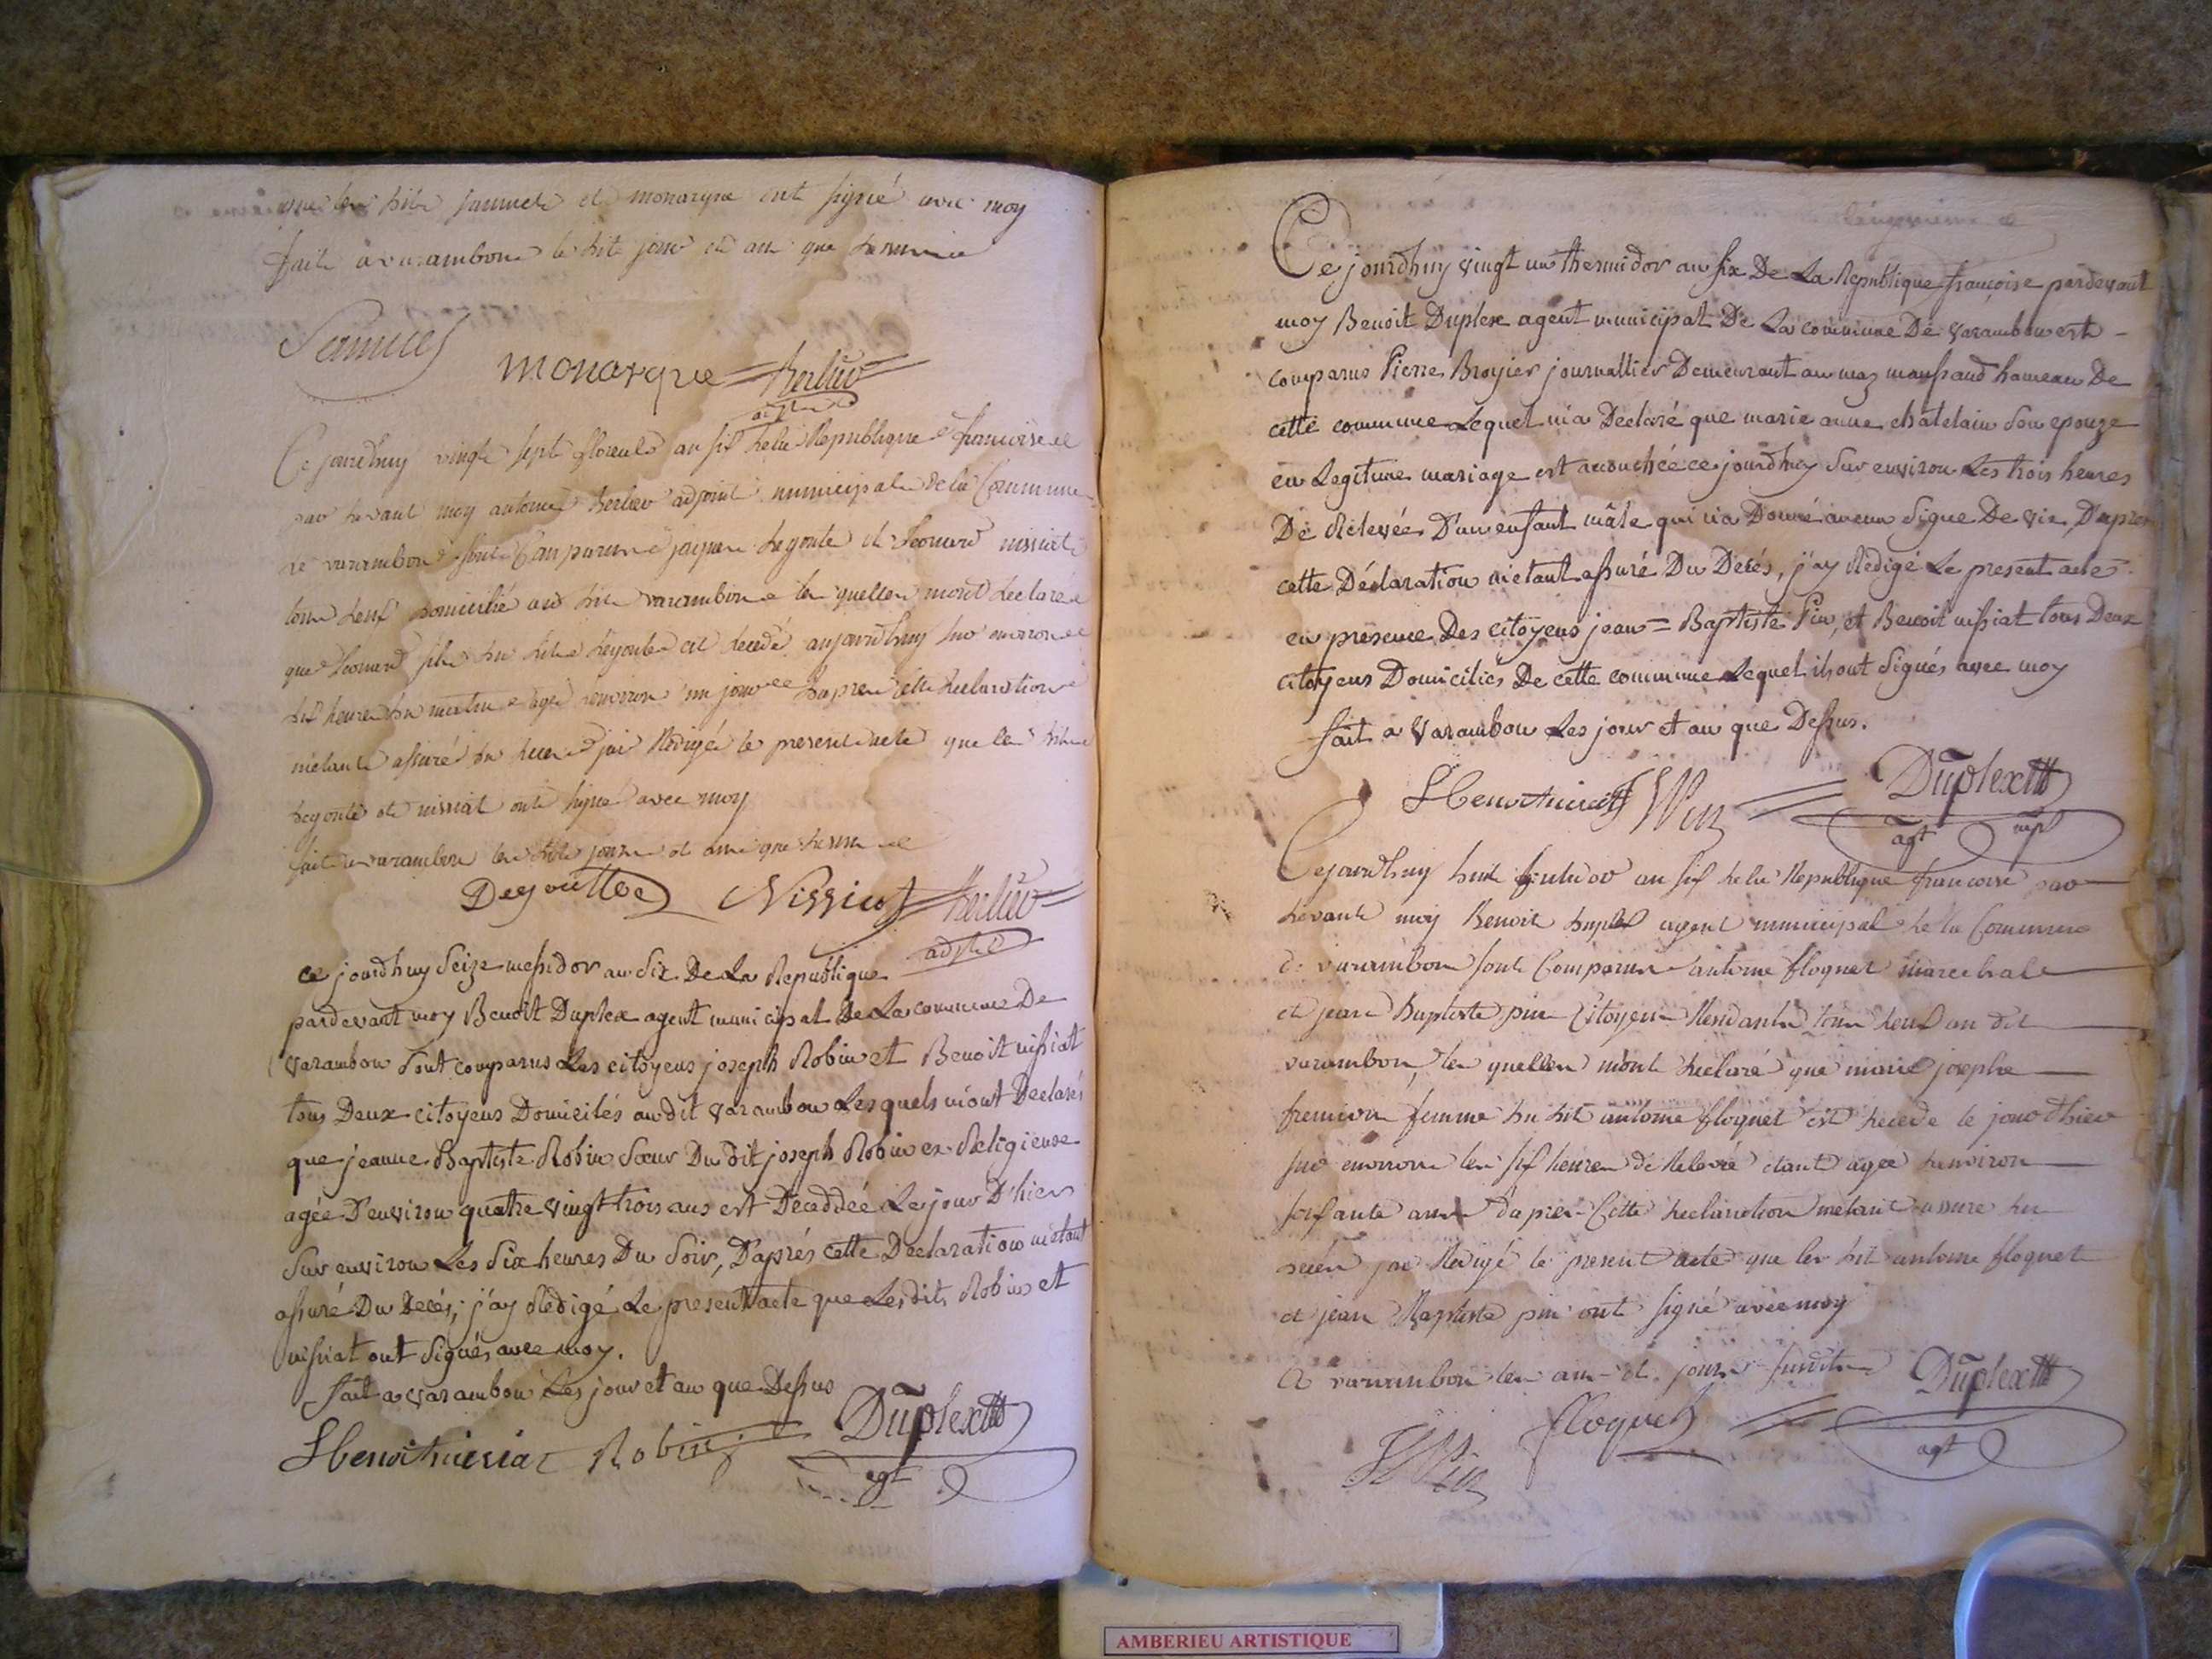 que les dits Jaunuet et monarque ont signé avec moy
fait a varambon le dit jour et an que dessus
monarque Berlier
adjt
Ce jourdhuy vingt sept floreal an six de la Republique francoise
par devant moy antoine Berlier adjoint municipal de la Commune
de varambon sont Comparus jaques degoute et Leonard nissiat
tous deux domicilié au dit varambon les quelles mont declaré
que Leonard fils du dit degoute est decedé aujourdhuy sur environ
dix heures du matin agé denviron un jour dapres cette declaration
métant assuré du deces jai Redigé le present acte que les dits
degoute et nissiat ont signé avec moy
fait a varambon les dits jour et an que dessus
Degoutte Nissiat Berlier
adjt
ce jourdhuy Seize messidor an Six De La Republique
pardevant moy Benoit Duplex agent municipal De La commune De
varambon Sont comparus Les citoyens joseph Robin et Benoit nissiat
tous Deux citoyens Domiciliés au dit varambon Lesquels m'ont Declarés
que jeanne Baptiste Robin Sœur Du dit joseph Robin ex Religieuse
agée D'environ quatre vingt trois ans est Decedée Le jour D'hier
Sur environ Les Six heures Du Soir, D'aprés cette Declaration m'etant
assuré Du Decés, j'ay Redigé Le present acte que Lesdits Robin et
nissiat ont Signés avec moy.
fait a varambon Les jour et an que Dessus
Benoit nissiat Robin Duplex
agt
Ce jourdhuy vingt un thermidor an six De La Republique françoise pardevant
moy Benoit Duplex agent municipal De La commune De varambon est
comparus Pierre Broyier journallier Demeurant au maz maussaud hameau De
cette commune Lequel m'a Declaré que marie anne chatelain Son epouze
en Legitime mariage est accouchée ce jourdhuy Sur environ Les trois heures
De Relevée D'un enfant mâle qui n'a Donné aucun Signe De vie, D'apres
cette Déclaration m'etant assuré Du Decés, j'ay Redigé Le present acte
en presence Des citoyens jean = Baptiste Pin, et Benoit nissiat tous Deux
citoyens Domiciliés De cette commune Lequel ils ont Signés avec moy
fait a Varambon Les jour et an que Dessus.
Benoit nissiat Pin Duplex
agt mpl
Cejourdhuy huit fructidor an six de la Republique francoise par
devant moy Benoit duplex agent municipal de la Commune
de varambon sont Comparus antoine floquet marechal
et jean Baptiste pin Citoyens Residants tous deux au dit
varambon, les quelles m'ont declaré que marie josephe
fremion femme du dit antoine floquet est decedé le jour dhier
sur environ les six heures de Relevé etant agée denviron
soixante ans dapres Cette declaration métant assure du
deces jai Redigé le present acte que les dit antoine floquet
et jean Baptiste pin ont signé avec moy
A varambon les an et jour susdits
Pin floquet Duplex
agt
AMBERIEU ARTISTIQUE